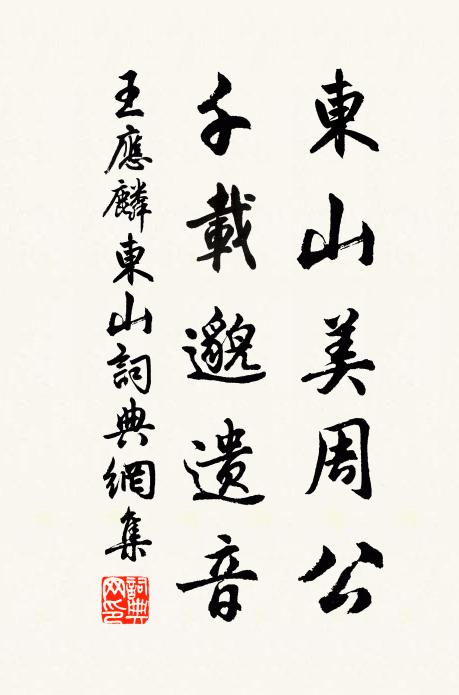 東山美周公
千載邈遺音
王應麟東山詞典網集
詞典網印